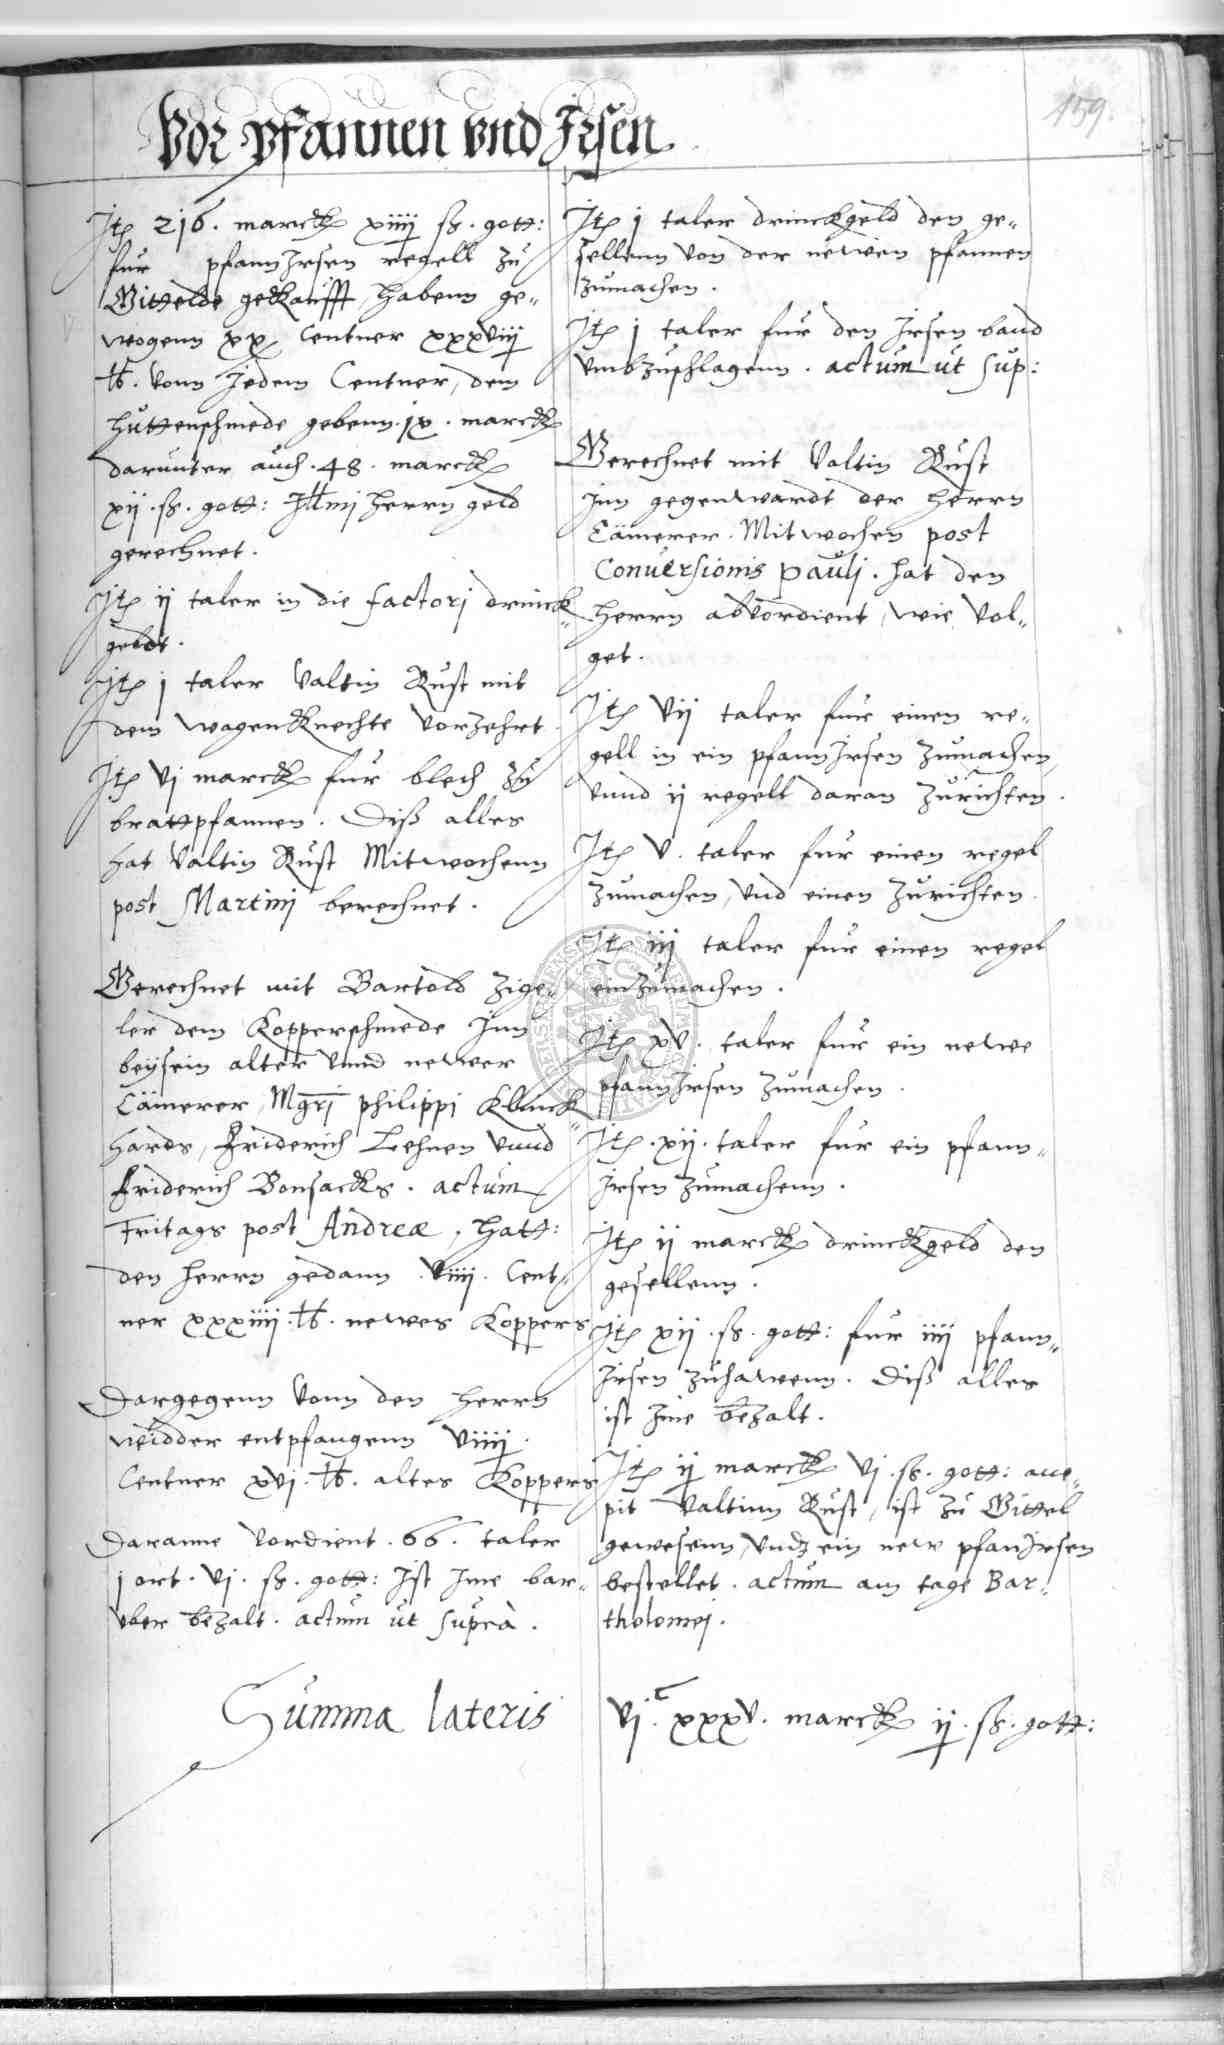 159.
Vor pfannen vnd Jrsen
Jtem 216. marck xiiij ss. gott:
fur pfannJrsen regell zu
Gittelde gekaufft, habenn ge„
wogenn xx Centner xxxviij
lb. vonn Jedem Centner, dem
huttenschmede gebenn .ix. marck
darunter auch .48. marck
xij .ss. gott: Jllmi herrn geld
gerechnet.
Jtem ij taler in die factori drinck„
geldt.
Jtem j taler Valtin Rust mit
dem wagenKnechte vorzehrt.
Jtem vj marck fur blech zu
brattpfannen. Diß alles
hat Valtin Rust Mitwochenn
post Martinj berechnet.
Gerechnet mit Bartold Zige„
ler dem Kopperschmede Jnn
beysein alter vnnd newer
Cämerer, Mgri philippj Klunck„
hards, Friderich Lehnen vnnd
Friderich Bonsacks. actum
Fritags post Andreæ, hatt:
den herrn gedann .viiij. Cent„
ner xxxiiij .lb. newes Koppers
Dargegenn vonn den herrn
weidder entpfangenn viiij.
Centner xvj .lb. altes Koppers
Daranne vordient .66. taler
j ort .vj. ss. gott: Jst Jme bar„
vber bezalt. actum ut supra.
Jtem j taler drinckgeld den ge„
sellenn von der newen pfannen
zumachen.
Jtem j taler fur den Jrsen band
vmbzuschlagenn. actum ut sup:
Gerechnet mit Valtin Rust
Jnn gegenwardt der herrn
Cämerer. Mitwochen post
Conuersionis Pauli. hat den
herrn abvordient, wie vol„
get.
Jtem vij taler fur einen re„
gell in ein pfannJrsen zumachen,
vnnd ij regell daran zurichten.
Jtem v. taler fur einen regel
zumachen, vnd einen zurichten.
Jtem iij taler fur einen regel
einzumachen.
Jtem xv. taler fur ein newe
pfannJrsen zumachen.
Jtem .xij. taler fur ein pfann„
Jrsen zumachenn.
Jtem ij marck drinckgeld den
gesellenn.
Jtem xij .ss. gott: fur iiij pfann„
Jrsen zuhawenn. Diß alles
ist Jme bezalt.
Jtem ij marck vj .ss. gott: acce„
pit Valtinn Rust, ist zu Gittel
gewesenn, vnd ein new pfanJrsen
bestellet. actum am tage Bar„
tholomej.
Summa lateris vj c xxxv. marck ij .ss. gott: